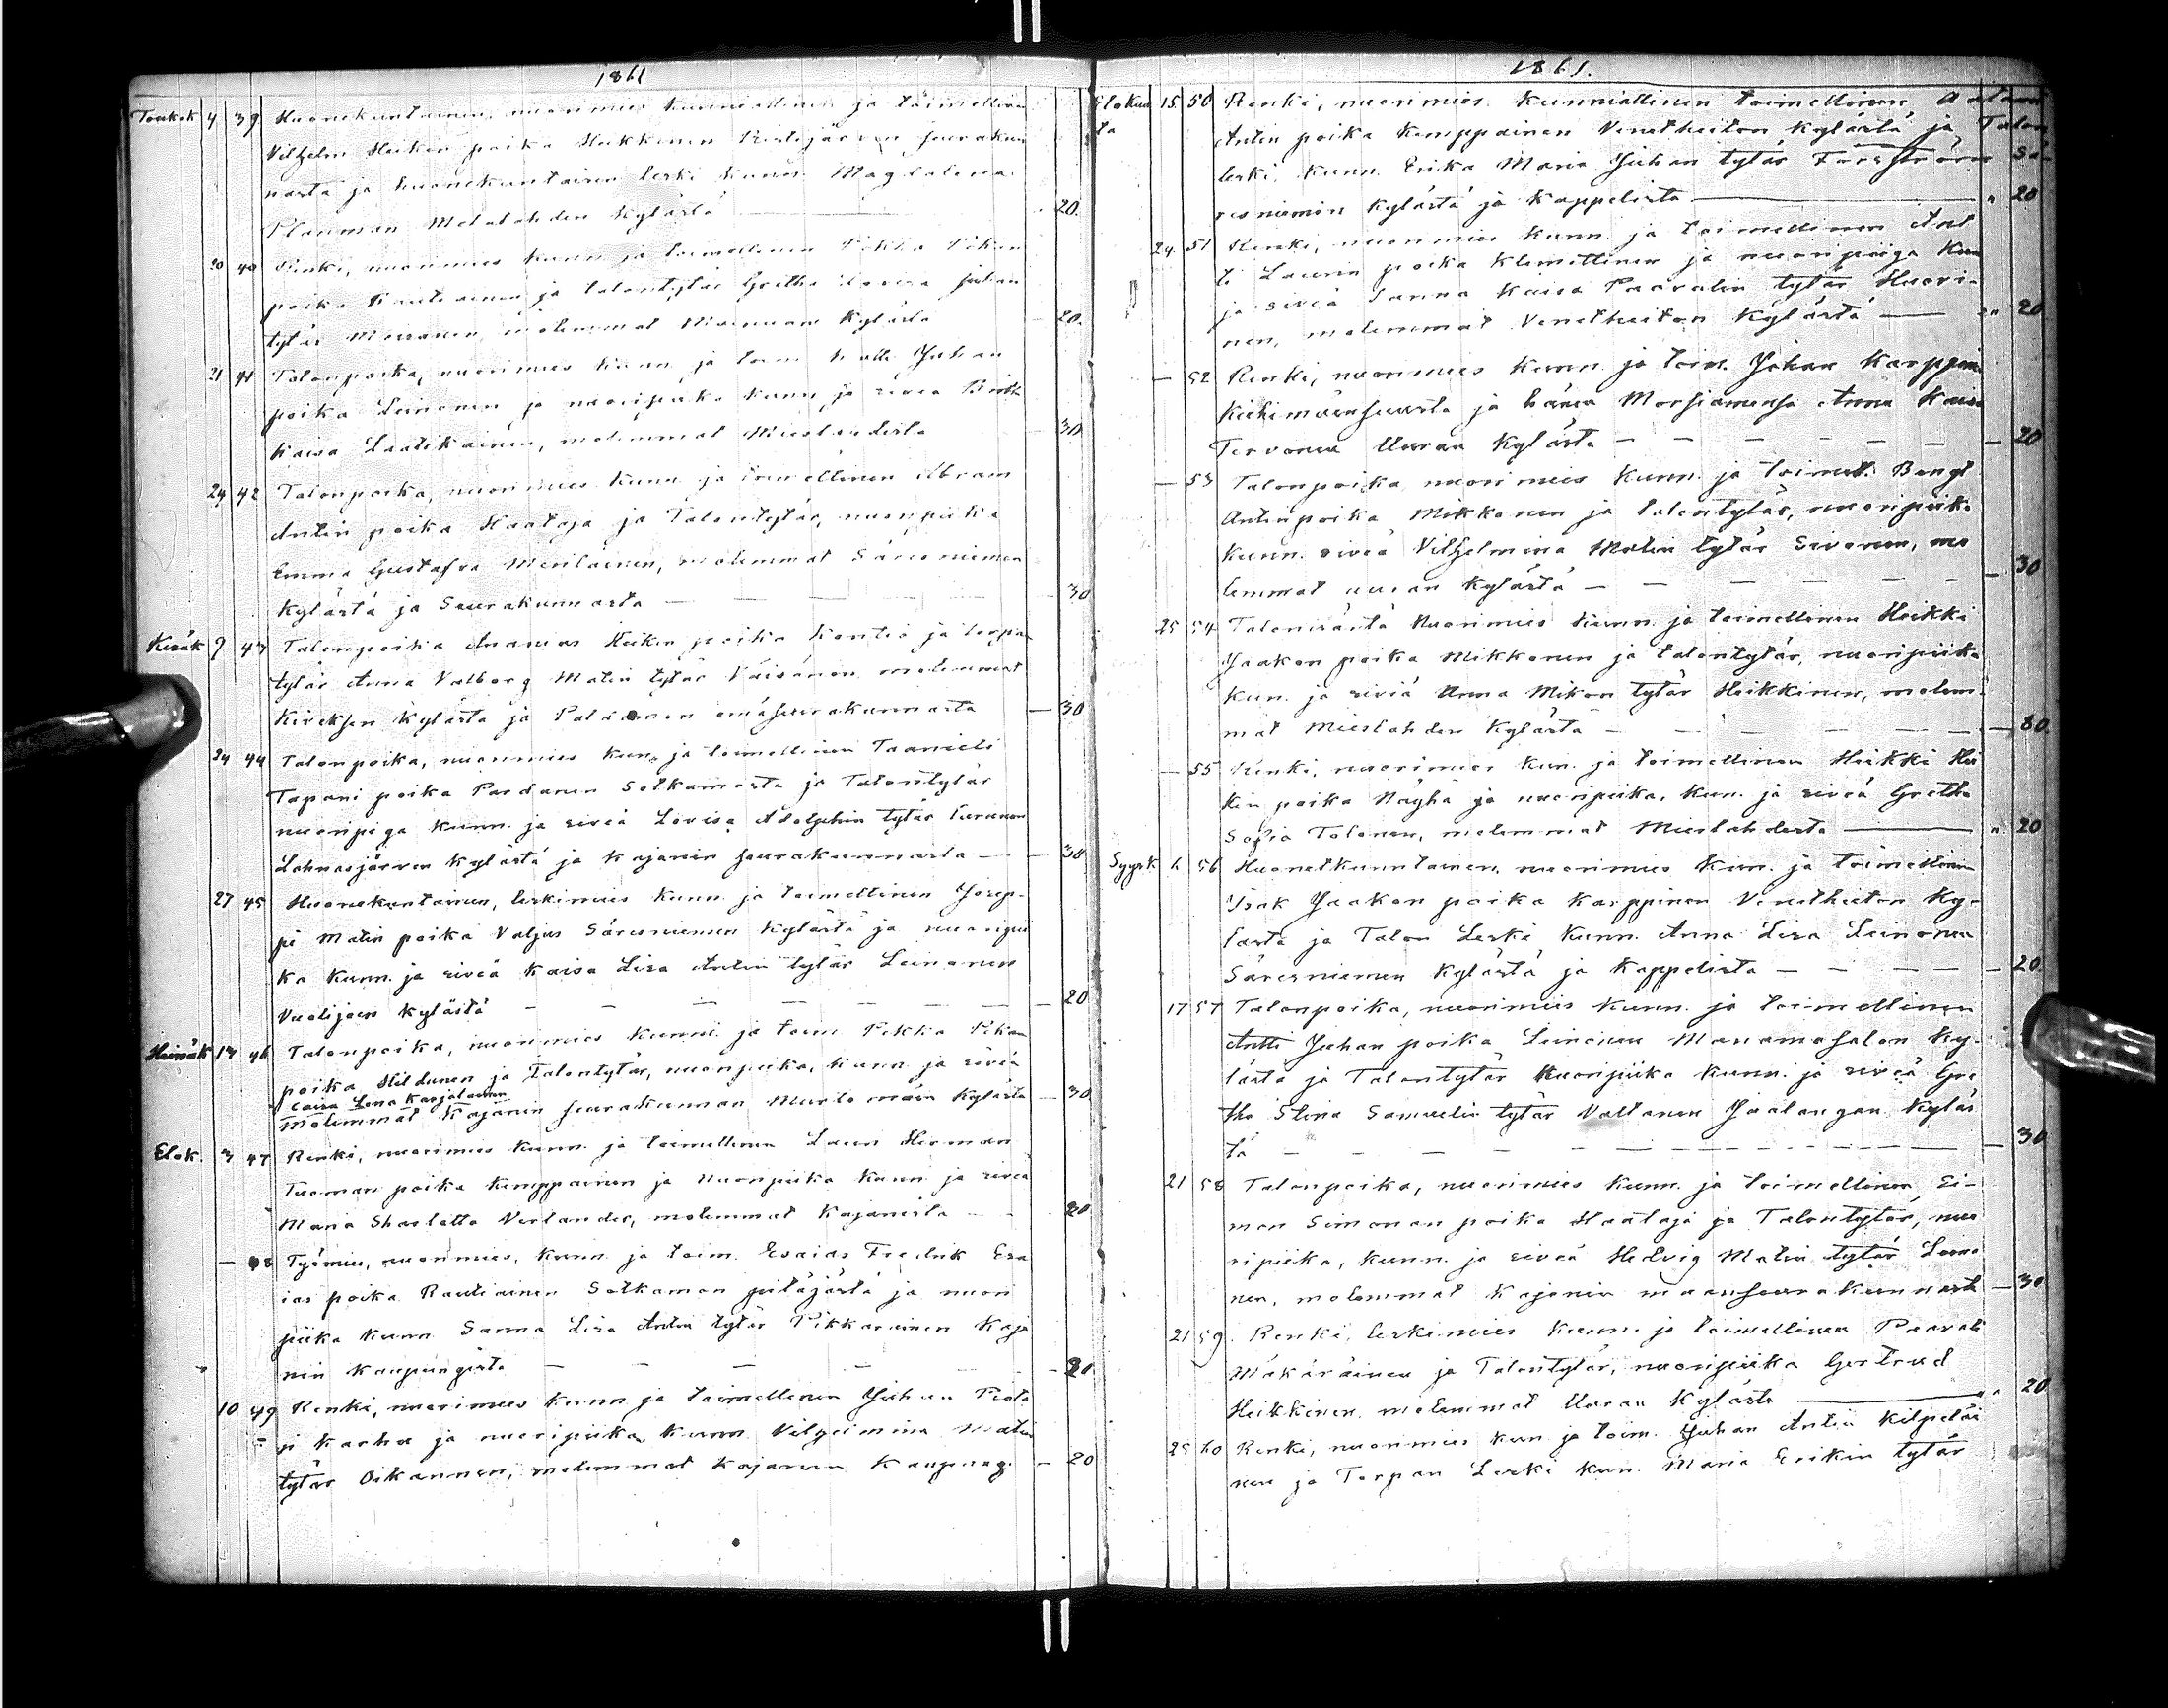 1861
Toukok 4 39 Huonekuntainen, nuorimies kunniallinen ja toimellinen
Vilhelm Heikin poika Heikkinen Ristijärven seurakun
nasta ja huonekuntaisen leski kunn. Magdalena
Planman Melalahden kylästä 20.
20 40 Renki, nuorimies kunn ja toimellinen Pekka Pekan
poika Rautiainen ja talontytär Gretha Lovisa Juhan
tytär Moisanen, molemmat kylästä 20.
21 41 Talonpoika, nuorimies kunn ja toim Juhan
poika Leinonen ja nuoripiika kunn ja siveä
Kaisa Laatikainen, molemmat Mieslahdesta 30
24 42 Talonpoika, nuorimies kunn ja toimellinen Abram
Antin poika Haataja ja Talontytär, nuoripiika
Emma Gustafva Meriläinen, molemmat Säresniemen
kylästä ja Seurakunnasta — — — — 30
Kesäk 9 43 Talonpoika Ananias Heikin poika Kontio ja torpan
tytär Anna Valborg Matin tytär Väisänen molemmat
Kireksen kylästä ja Paldamon emäseurakunnasta — 30
24 44 Talonpoika, nuorimies kun. ja toimellinen Taanieli
Tapani poika Pardanen Sotkamosta ja Talontytär
nuoripiga kunn. ja siveä Lovisa Adolphin tytär Turunen
Lahnasjärven kylästä ja Kajanin seurakunnasta — — 30
27 45 Huonekuntainen, leskimies kunn. ja toimellinen Josep-
pi Matin poika Valjus Säresniemen kylästä ja nuoripii
ka kunn. ja siveä Kaisa Lisa Antin tytär Leinonen
Vuolijoen kylästä — — — — — — 20
Heinäk 14 46 Talonpoika, nuorimies kunni. ja toim Pekka Pekan
poika Hildunen ja Talontytär, nuoripiika, kunn. ja siveä
Caisa Lena Karjalainen
molemmat Kajanin seurakunnan Murtomäen kylästä — 30
Elok. 3 47 Renki, nuorimies kunn. ja toimellinen Lauri Herman
Tuoman poika Kemppainen ja nuoripiika kunn ja siveä
Maria Sharlotta Verlander, molemmat Kajanista — 20
— 48 Työmies, nuorimies, kunn. ja toim. Esaias Fredrik Esa
ias poika Rautiainen Sotkamon pitäjästä ja nuori
piika kunn Sanna Lisa Antin tytär Pikkarainen Kaja
nin kaupungista — — — — — 20.
10 49 Renki, nuorimies kunn ja toimellinen Juhan
Karhu ja nuoripiika kunn Vilhelmina Matin
tytär Oikarinen, molemmat Kajanin kaupung. — 20
1861.
Elokuu 15 50 Renki, nuorimies kunniallinen toimellinen
ta Antin poika Kemppainen Venetheiton kylästä ja Talon
leski kunn. Erika Maria Juhan tytär Forsström Sä-
resniemin kylästä ja kappelista — " 20
24 51 Renki, nuorimies kunn. ja toimellinen Ant
ti Laurin poika Klemettinen ja nuoripiiga kun
ja siveä Sanna Kaisa Paavalin tytär Huovi-
nen, molemmat Venetheiton kylästä — " 20
— 52 Renki, nuorimies kunn. ja toim. Johan Karppin
Kiehimänsuusta ja hänen Morsiamensa Anna Kaisa
Tervonen Uuran kylästä — — — — — — 20
— 53 Talonpoika nuorimies kunn. ja toimell. Bengt
Antinpoika Mikkonen ja talontytär, nuoripiika
kunn. siveä Vilhelmina Matin tytär Sivonen, mo
lemmat uuran kylästä — — — — — — 30
25 54 Talonisäntä Nuorimies kunn. ja toimellinen Heikki
Jaakon poika Mikkonen ja talontytär, nuoripiika
kun. ja siviä Anna Mikon tytär Heikkinen, molem-
mat Mieslahden kylästä — — — — — 30.
— 55 Renki, nuorimies kun. ja toimellinen Heikki Hei
kin poika Näyhä ja nuoripiika, kun. ja siveä Gretha
Sofia Tolonen, molemmat Mieslahdesta — " 20
Syysk 1 56 Huonetkunntainen, nuorimies kun. ja toimellinen
Isak Jaakon poika Karppinen Venetheiton ky-
lästä ja Talon Leski kunn. Anna Lisa Leinonen
Säresniemen kylästä ja kappelista — — — — 20
17 57 Talonpoika, nuorimies kunn. ja toimellinen
Antti Juhan poika Leinonen Manamasalon ky-
lästä ja Talontytär Nuoripiika kunn. ja siveä Gre
tha Stina Samuelin tytär Valtanen Jaalangan kyläs
tä — — — — — — — — — 30
21 58 Talonpoika, nuorimies kunn. ja toimellinen Si-
mon Simonan poika Haataja ja Talontytär, nuo
ripiika, kunn. ja siveä Hedvig Matin tytär
nen, molemmat Kajanin maanseurakunnasta — 30
21 59. Renki, leskimies kunn. ja toimellinen Paavali
Mäkäräinen ja Talontytär, nuoripiika Gertrud
Heikkinen, molemmat Uuran kylästä — " 20
25 60 Renki, nuorimies kun ja toim. Juhan Antin Kilpeläi
nen ja Torpan Leski kun. Maria Erikin tytär